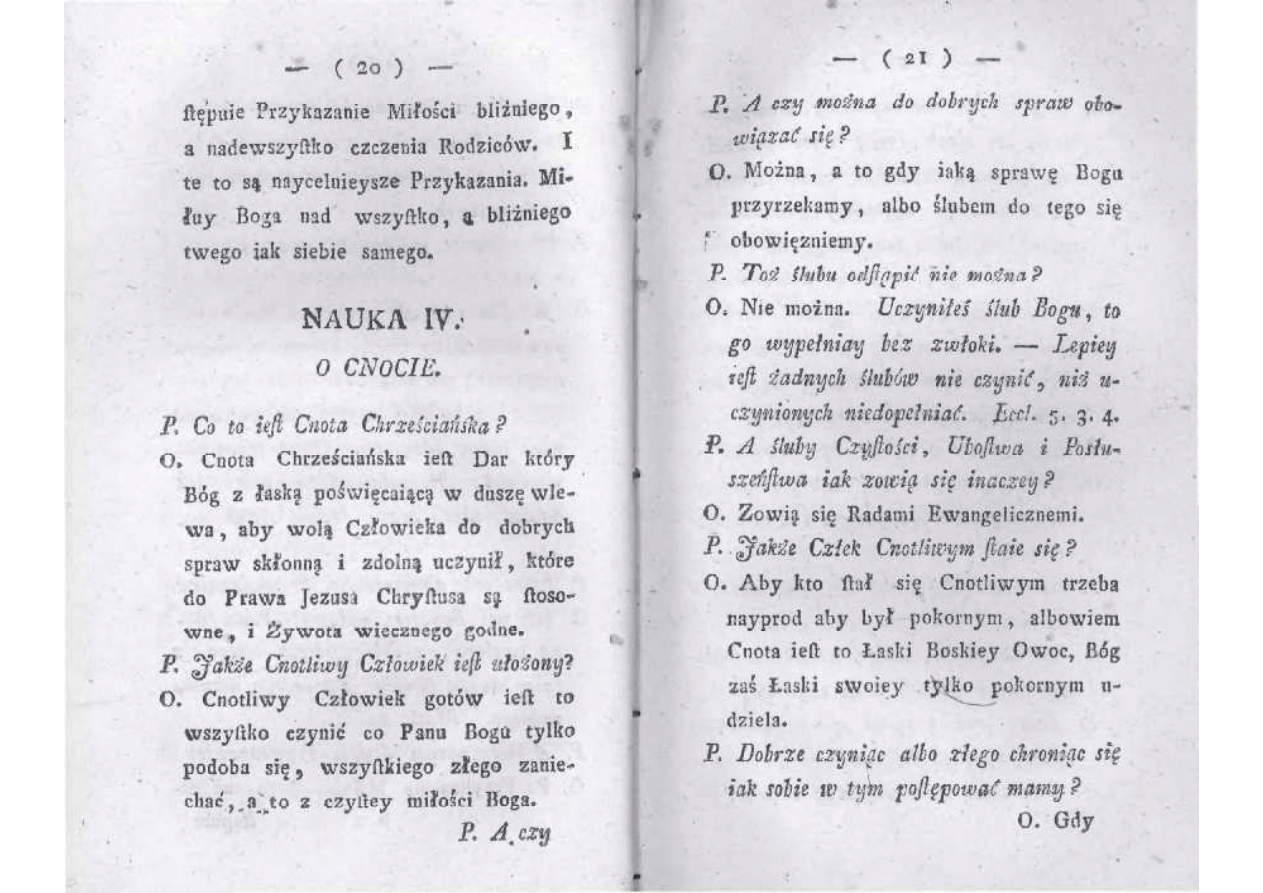 — ( 20 ) —
ſtępuie Przykazanie Miłości bliżniego,
a nadewszyſtko czczenia Rodziców. I
te to są naycelnieysze Przykazania. Mi-
łuy Boga nad wszyſtko, a bliżniego
twego iak siebie samego.
NAUKA IV.
O CNOCIE.
P. Co to ieſt Cnota Chrześciańska?
O. Cnota Chrześciańska ieſt Dar który
Bóg z łaską poświęcaiącą w duszę wle-
wa, aby wolą Człowieka do dobrych
spraw skłonną i zdolną uczynił, które
do Prawa Jezusa Chryſtusa są ſtoso-
wne, i Żywota wiecznego godne.
P. Jakże Cnotliwy Człowiek ieſt ułożony?
O. Cnotliwy Człowiek gotów ieſt to
wszyſtko czynić co Panu Bogu tylko
podoba się, wszyſtkiego złego zanie-
chać, a to z czyſtey miłości Boga.
P. A czy
— ( 21 ) —
P. A czy można do dobrych spraw obo-
wiązać się?
O. Można, a to gdy iaką sprawę Bogu
przyrzekamy, albo ślubem do tego się
obowięzniemy.
P. Toż ślubu odſtąpić nie można?
O. Nie można. Uczyniłeś ślub Bogu, to
go wypełniay bez zwłoki. — Lepiey
ieſt żadnych ślubów nie czynić, niż u-
czynionych niedopełniać. Eccl. 5. 3. 4.
P. A śluby Czyſtości, Uboſtwa i Posłu-
szeńſtwa iak zowią się inaczey?
O. Zowią się Radami Ewangelicznemi.
P. Jakże Człek Cnotliwym ſtaie się?
O. Aby kto ſtał się Cnotliwym trzeba
nayprod aby był pokornym, albowiem
Cnota ieſt to Łaski Boskiey Owoc, Bóg
zaś Łaski swoiey tylko pokornym u-
dziela.
P. Dobrze czyniąc albo złego chroniąc się
iak sobie w tym poſtępować mamy?
O. Gdy